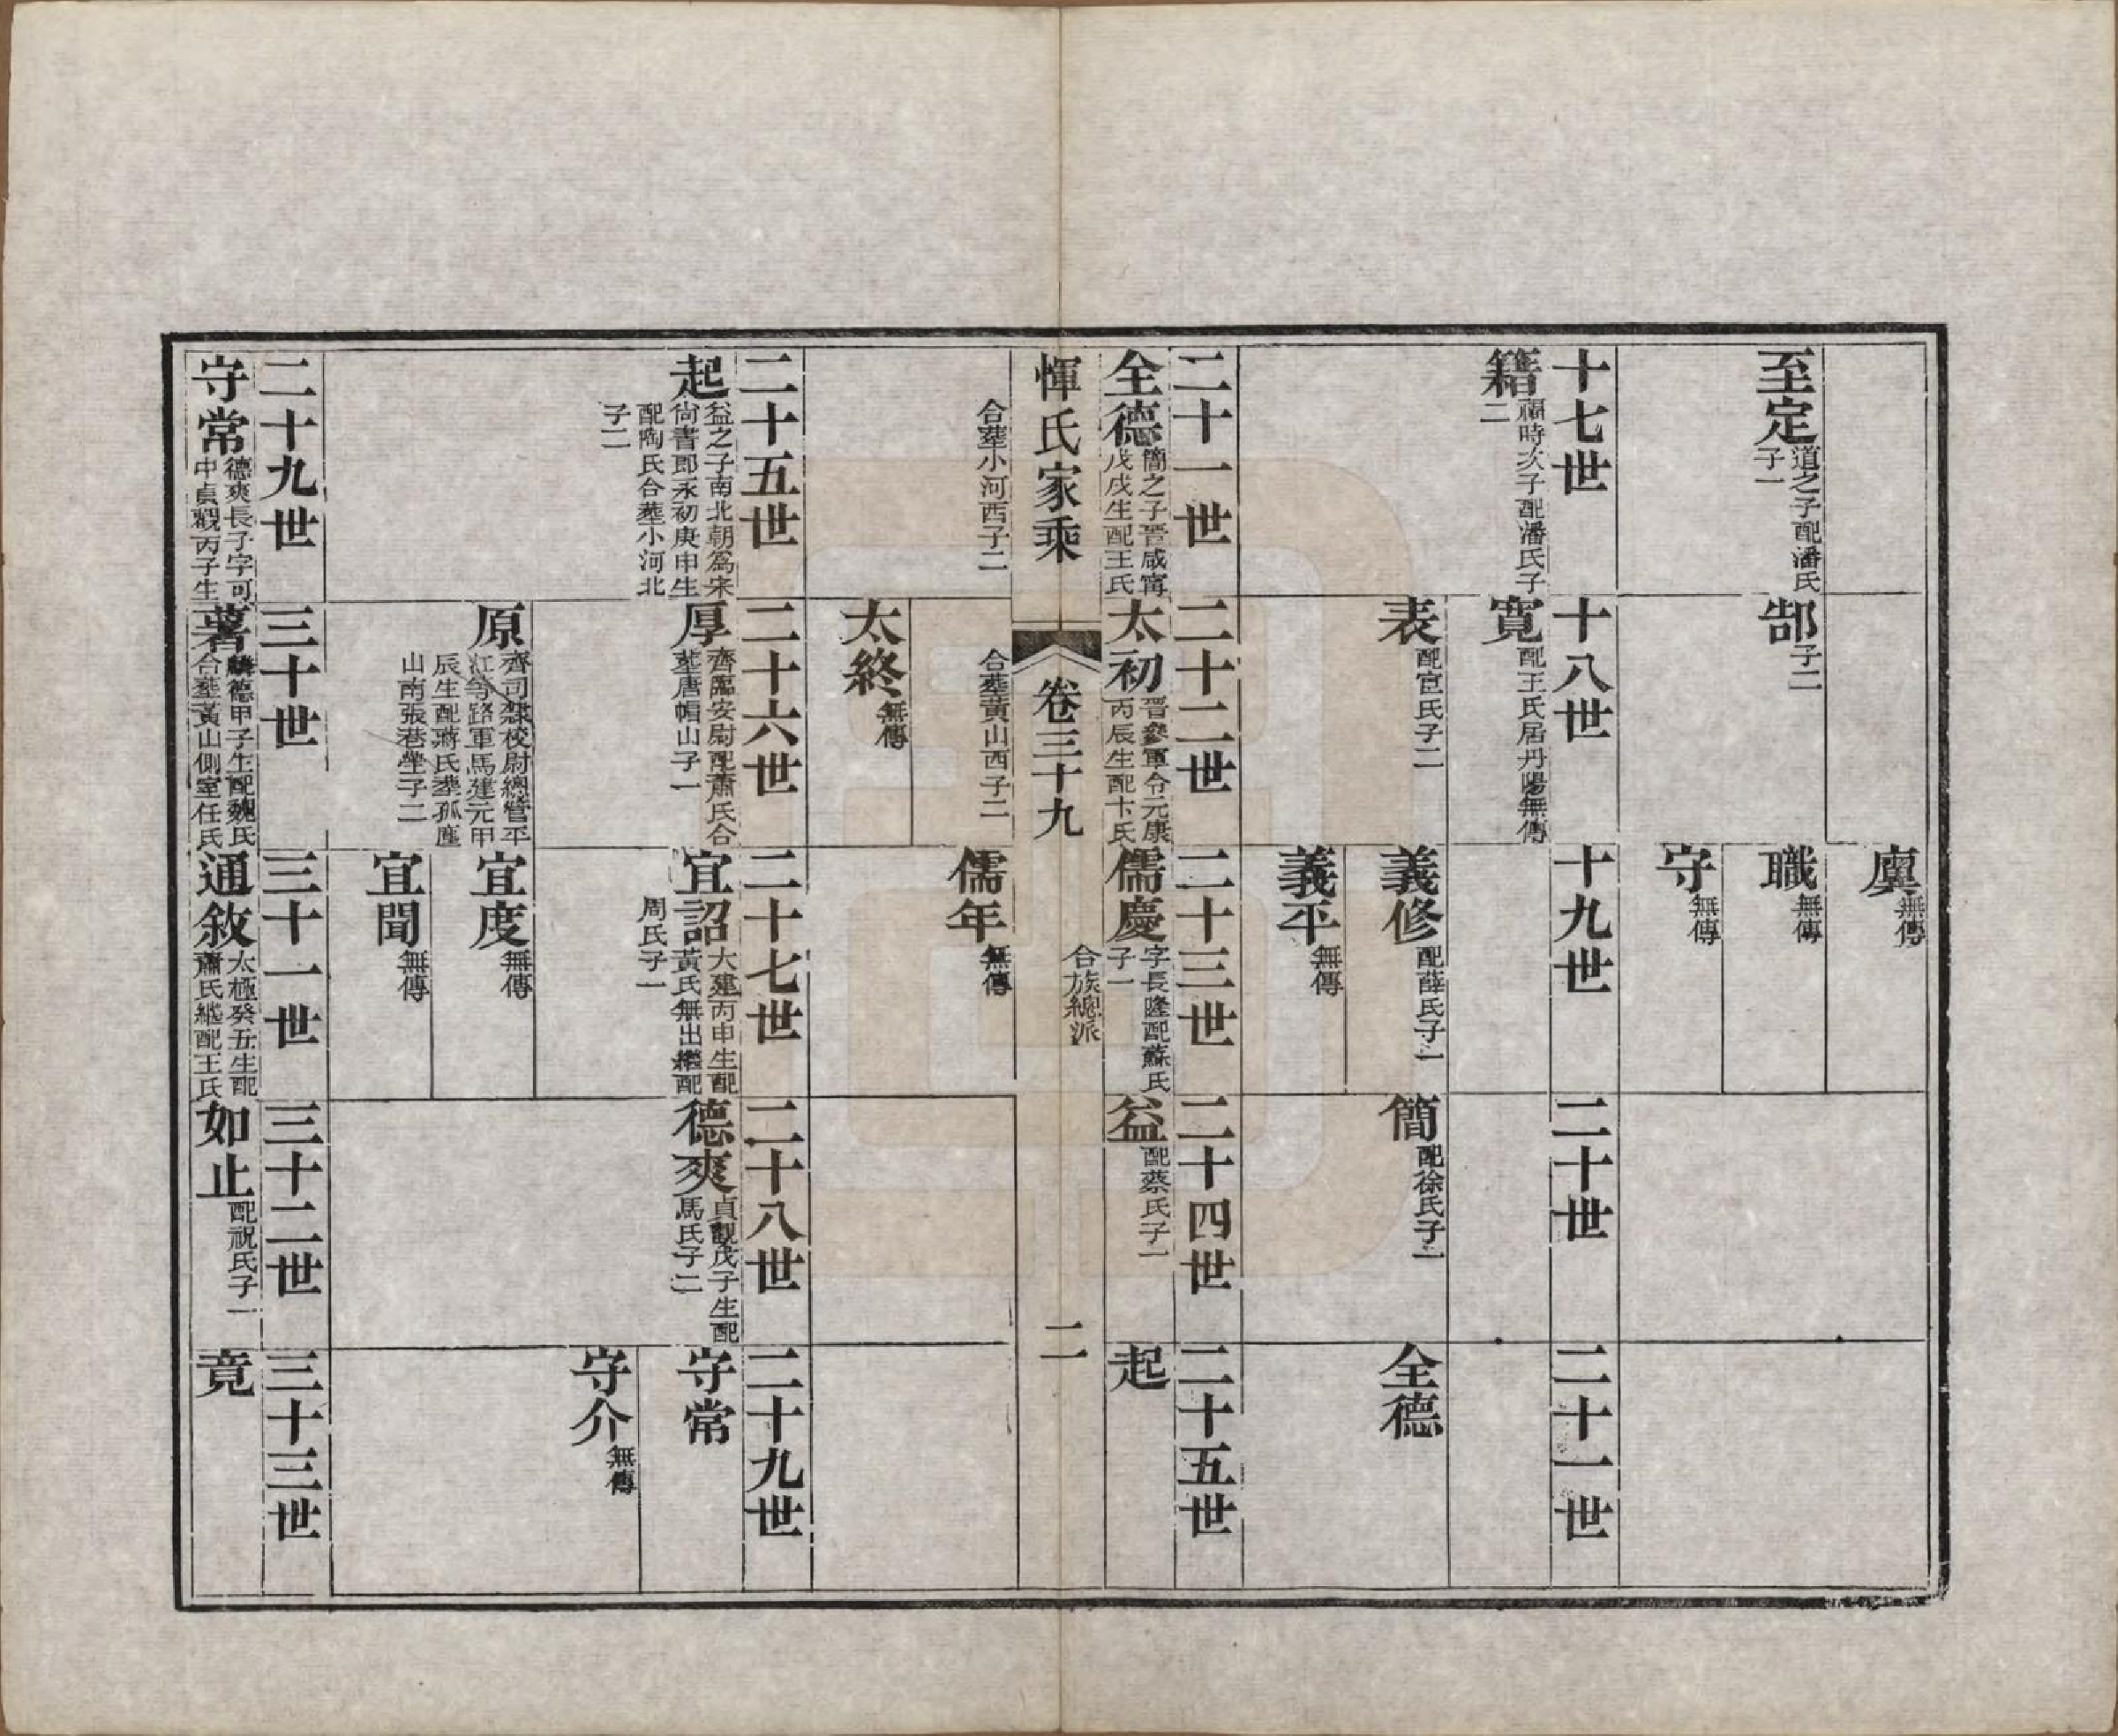 至定 道之子配潘氏子一
郜 子二
虞 無傳
職 無傳
守 無傳
十七世
籍 福時次子配潘氏子二
十八世
寬 配王氏居丹陽無傳
表 配宣氏子二
十九世
義修 配薛氏子一
義平 無傳
二十世
簡 配徐氏子一
二十一世
全德
二十一世
全德 簡之子晉咸甯戊戌生配王氏
合塟小河西子二
二十二世
太初 晉參軍令元康丙辰生配卞氏
合塟黃山西子二
太終 無傳
二十三世
儒慶 字長隆配蘇氏子一
儒年 無傳
二十四世
益 配蔡氏子一
二十五世
起
惲氏家乘
卷三十九
合族總派
二
二十五世
起 益之子南北朝爲宋尙書郎永初庚申生配陶氏合塟小河北子二
二十六世
厚 齊臨安尉配蕭氏合塟唐帽山子一
原 齊司隸校尉總管平江等路軍馬建元甲辰生配蔣氏塟孤塵山南張巷坐子二
二十七世
宜詔 大建丙申生配黃氏無出繼配周氏子一
宜度 無傳
宜聞 無傳
二十八世
德爽 貞觀戊子生配馬氏子二
二十九世
守常
守介 無傳
二十九世
守常 德爽長子字可中貞觀丙子生
三十世
著 麟德甲子生配魏氏合塟黃山側室任氏
三十一世
通敘 太極癸丑生配蕭氏繼配王氏
三十二世
如止 配祝氏子一
三十三世
竟